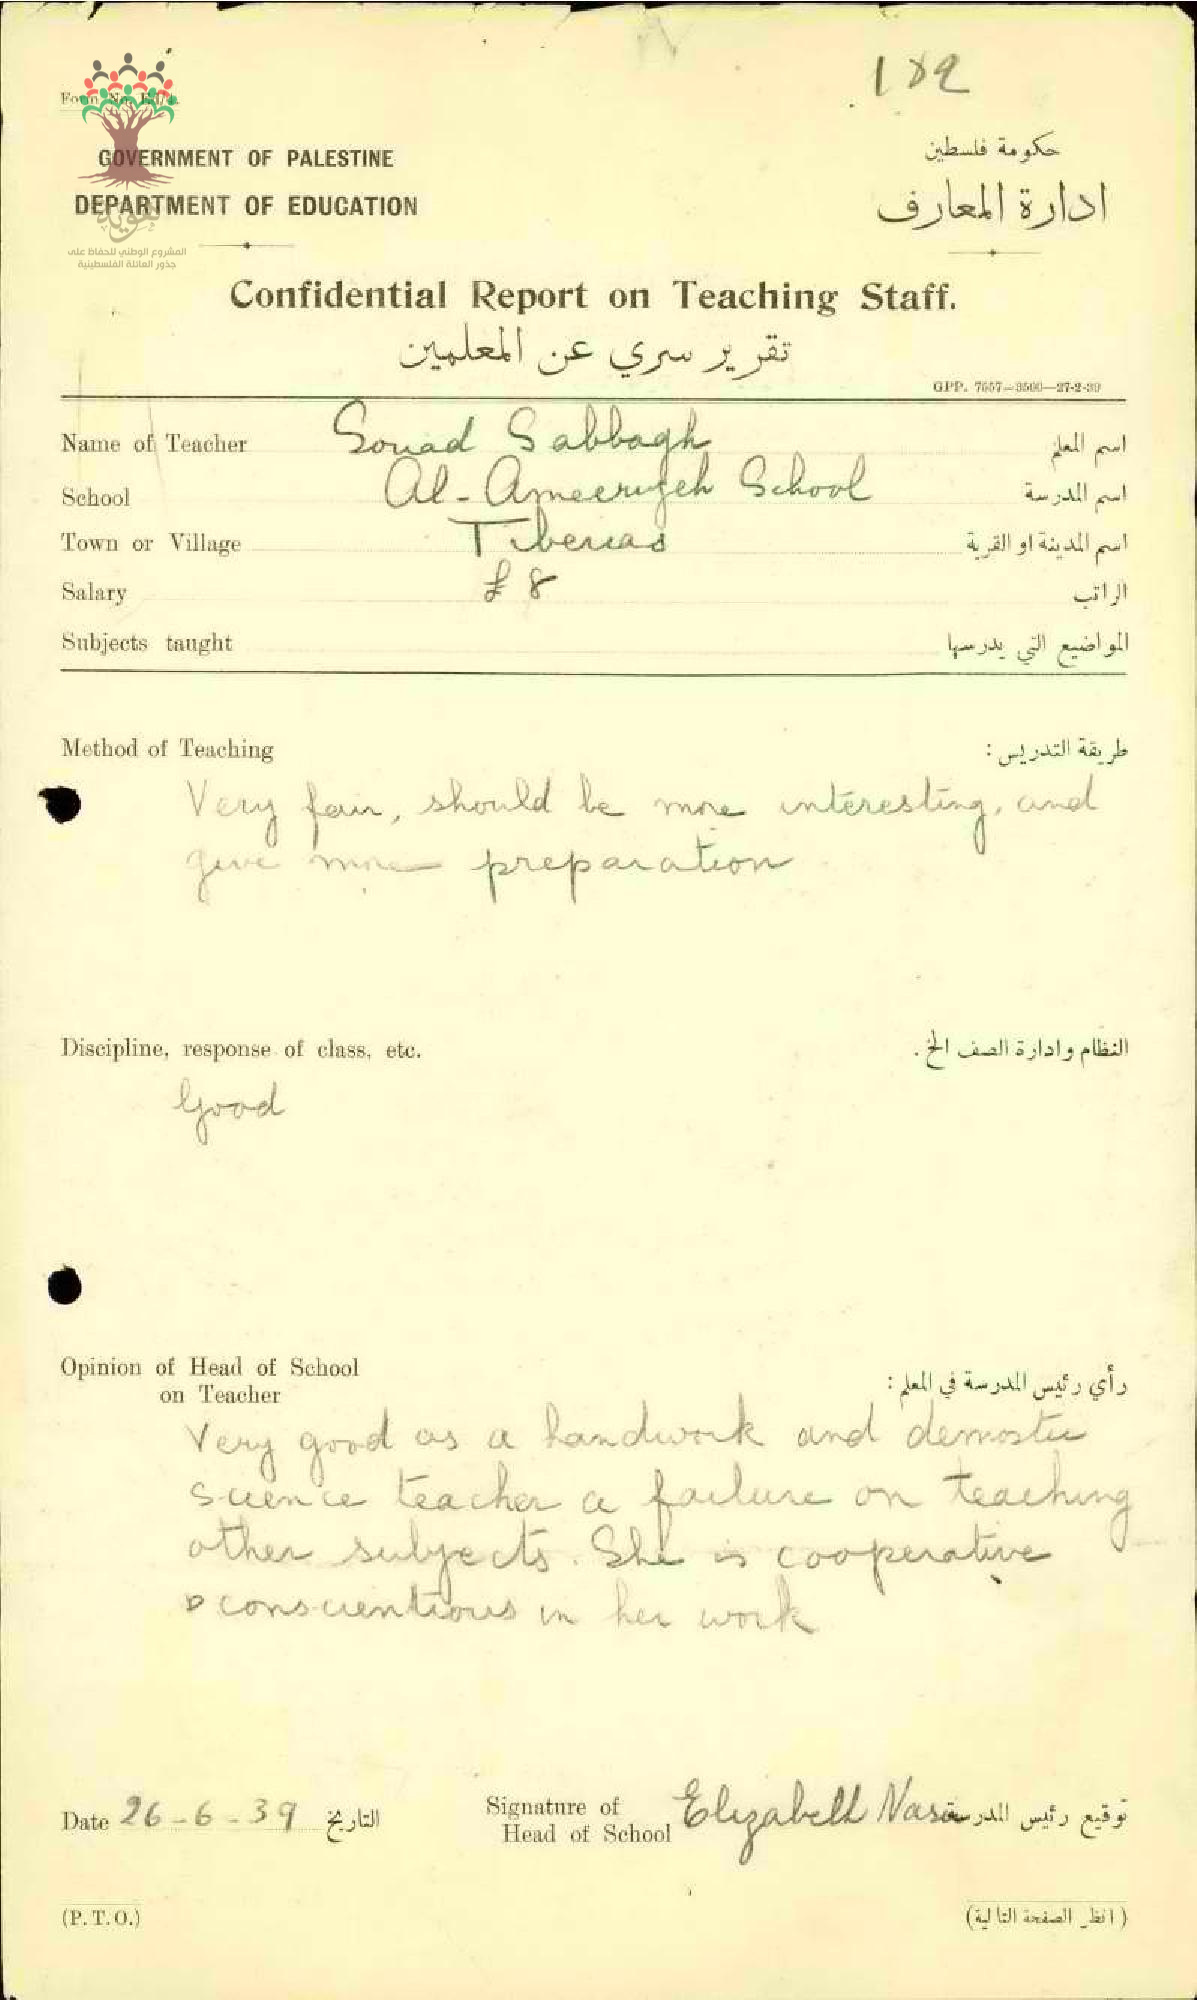 182
Form No. Ed/4.
GOVERNMENT OF PALESTINE
حكومة فلسطين
DEPARTMENT OF EDUCATION
ادارة المعارف
هوية
المشروع الوطني للحفاظ على
جذور العائلة الفلسطينية
Confidential Report on Teaching Staff.
تقرير سري عن المعلمين
GPP. 7557—3500—27-2-39
Name of Teacher Souad Sabbagh اسم المعلم
School Al-Ameeriyeh School اسم المدرسة
Town or Village Tiberias اسم المدينة او القرية
Salary £ 8 الراتب
Subjects taught المواضيع التي يدرسها
Method of Teaching طريقة التدريس :
Very fair, should be more interesting, and
give more preparation
Discipline, response of class, etc. النظام وادارة الصف الخ .
Good
Opinion of Head of School رأي رئيس المدرسة في المعلم :
on Teacher
Very good as a handwork and domestic
science teacher a failure on teaching
other subjects. She is cooperative
& conscientious in her work
Date 26-6-39 التاريخ Signature of Elizabeth Nasir توقيع رئيس المدرسة
Head of School
(P. T. O.) (انظر الصفحة التالية)